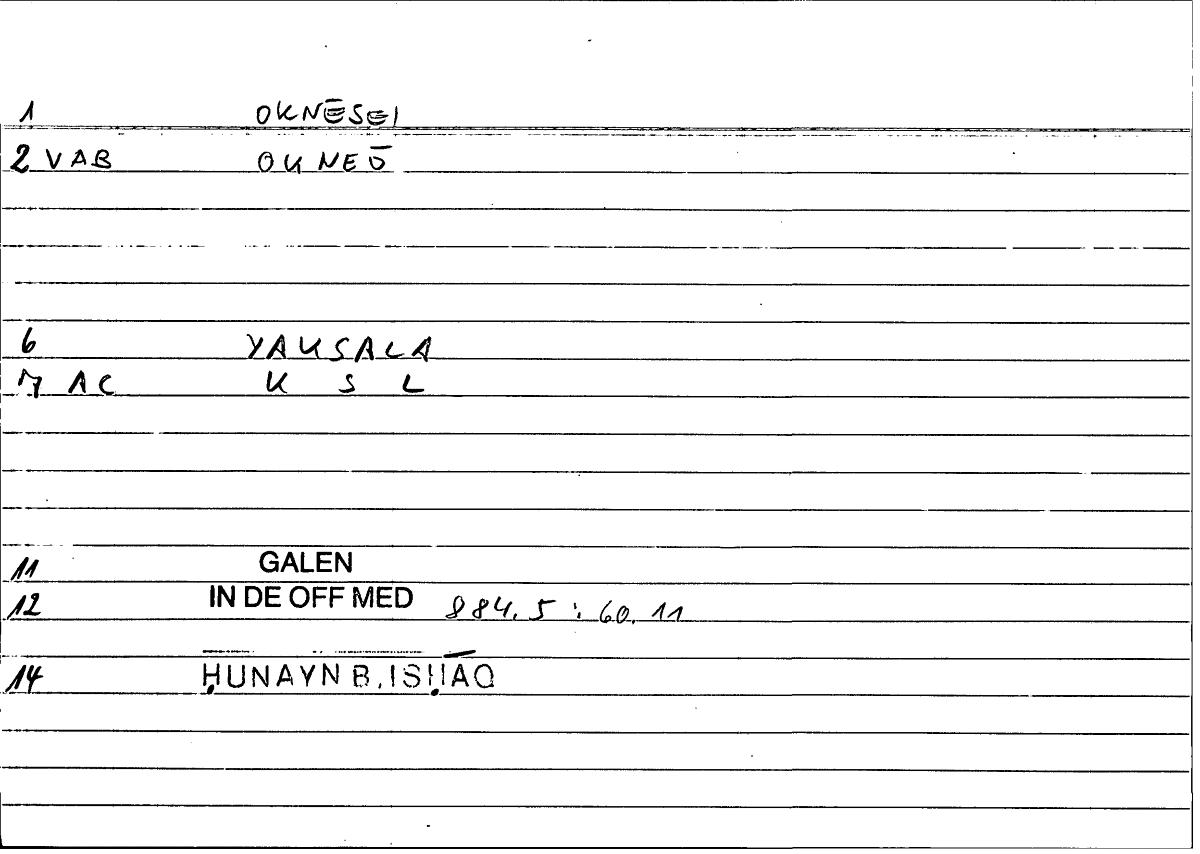 1 OKNĒSEI
2 VAB OKNEŌ
6 YAKSALA
7 AC K S L
11 GALEN
12 IN DE OFF MED 884.5 : 60.11
14 ḤUNAYN B. ISḤĀQ